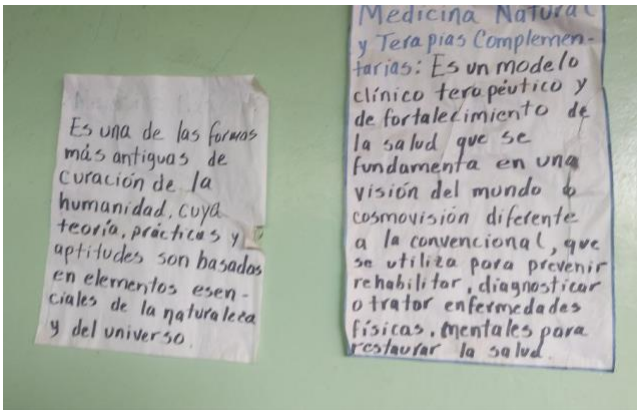 Es una de las formas
más antiguas de
curación de la
humanidad, cuya
teoría, prácticas y
aptitudes son basadas
en elementos esen-
ciales de la naturaleza
y del universo.
Medicina Natural
y Terapias Complemen-
tarias: Es un modelo
clínico terapéutico y
de fortalecimiento de
la salud que se
fundamenta en una
visión del mundo o
cosmovisión diferente
a la convencional, que
se utiliza para prevenir
rehabilitar, diagnosticar
o tratar enfermedades
físicas, mentales para
restaurar la salud.